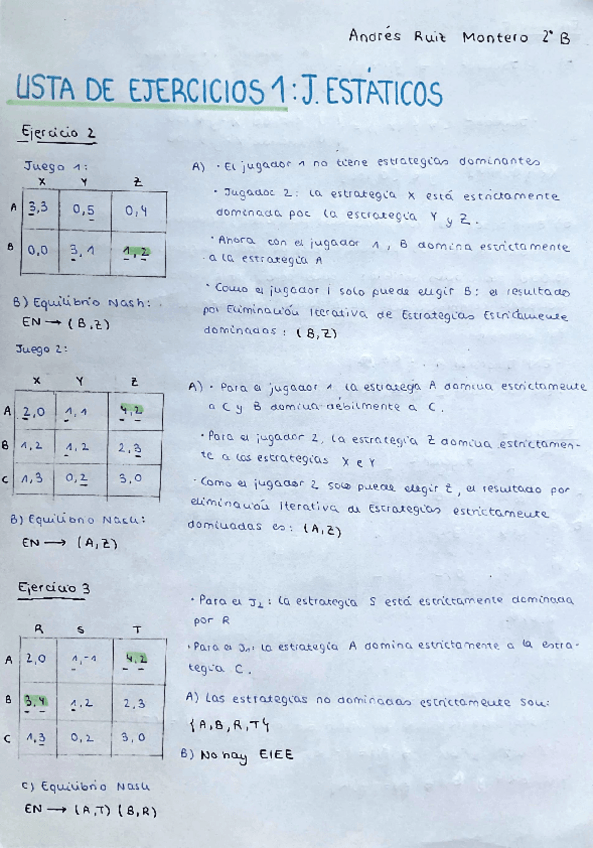 Andrés Ruiz Montero 2º B
LISTA DE EJERCICIOS 1: J. ESTÁTICOS
Ejercicio 2
Juego 1:
X Y Z
A 3,3 0,5 0,4
B 0,0 3,1 1,2
B) Equilibrio Nash:
EN → (B,Z)
A) · El jugador 1 no tiene estrategias dominantes
· Jugador 2: la estrategia X está estrictamente
dominada por la estrategia Y y Z.
· Ahora con el jugador 1, B domina estrictamente
a la estrategia A
· Como el jugador 1 solo puede elegir B: el resultado
por Eliminación Iterativa de Estrategias Estrictamente
dominadas: (B,Z)
Juego 2:
X Y Z
A 2,0 1,1 4,2
B 1,2 1,2 2,3
C 1,3 0,2 3,0
B) Equilibrio Nash:
EN → (A,Z)
A) · Para el jugador 1 la estrategia A domina estrictamente
a C y B domina débilmente a C.
· Para el jugador 2, la estrategia Z domina estrictamen-
te a las estrategias X e Y
· Como el jugador 2 solo puede elegir Z, el resultado por
eliminación Iterativa de Estrategias estrictamente
dominadas es: (A,Z)
Ejercicio 3
R S T
A 2,0 1,-1 4,2
B 3,4 1,2 2,3
C 1,3 0,2 3,0
C) Equilibrio Nash
EN → (A,T) (B,R)
· Para el J2: la estrategia S está estrictamente dominada
por R
· Para el J1: la estrategia A domina estrictamente a la estra-
tegia C.
A) Las estrategias no dominadas estrictamente son:
{A,B,R,T}
B) No hay EIEE